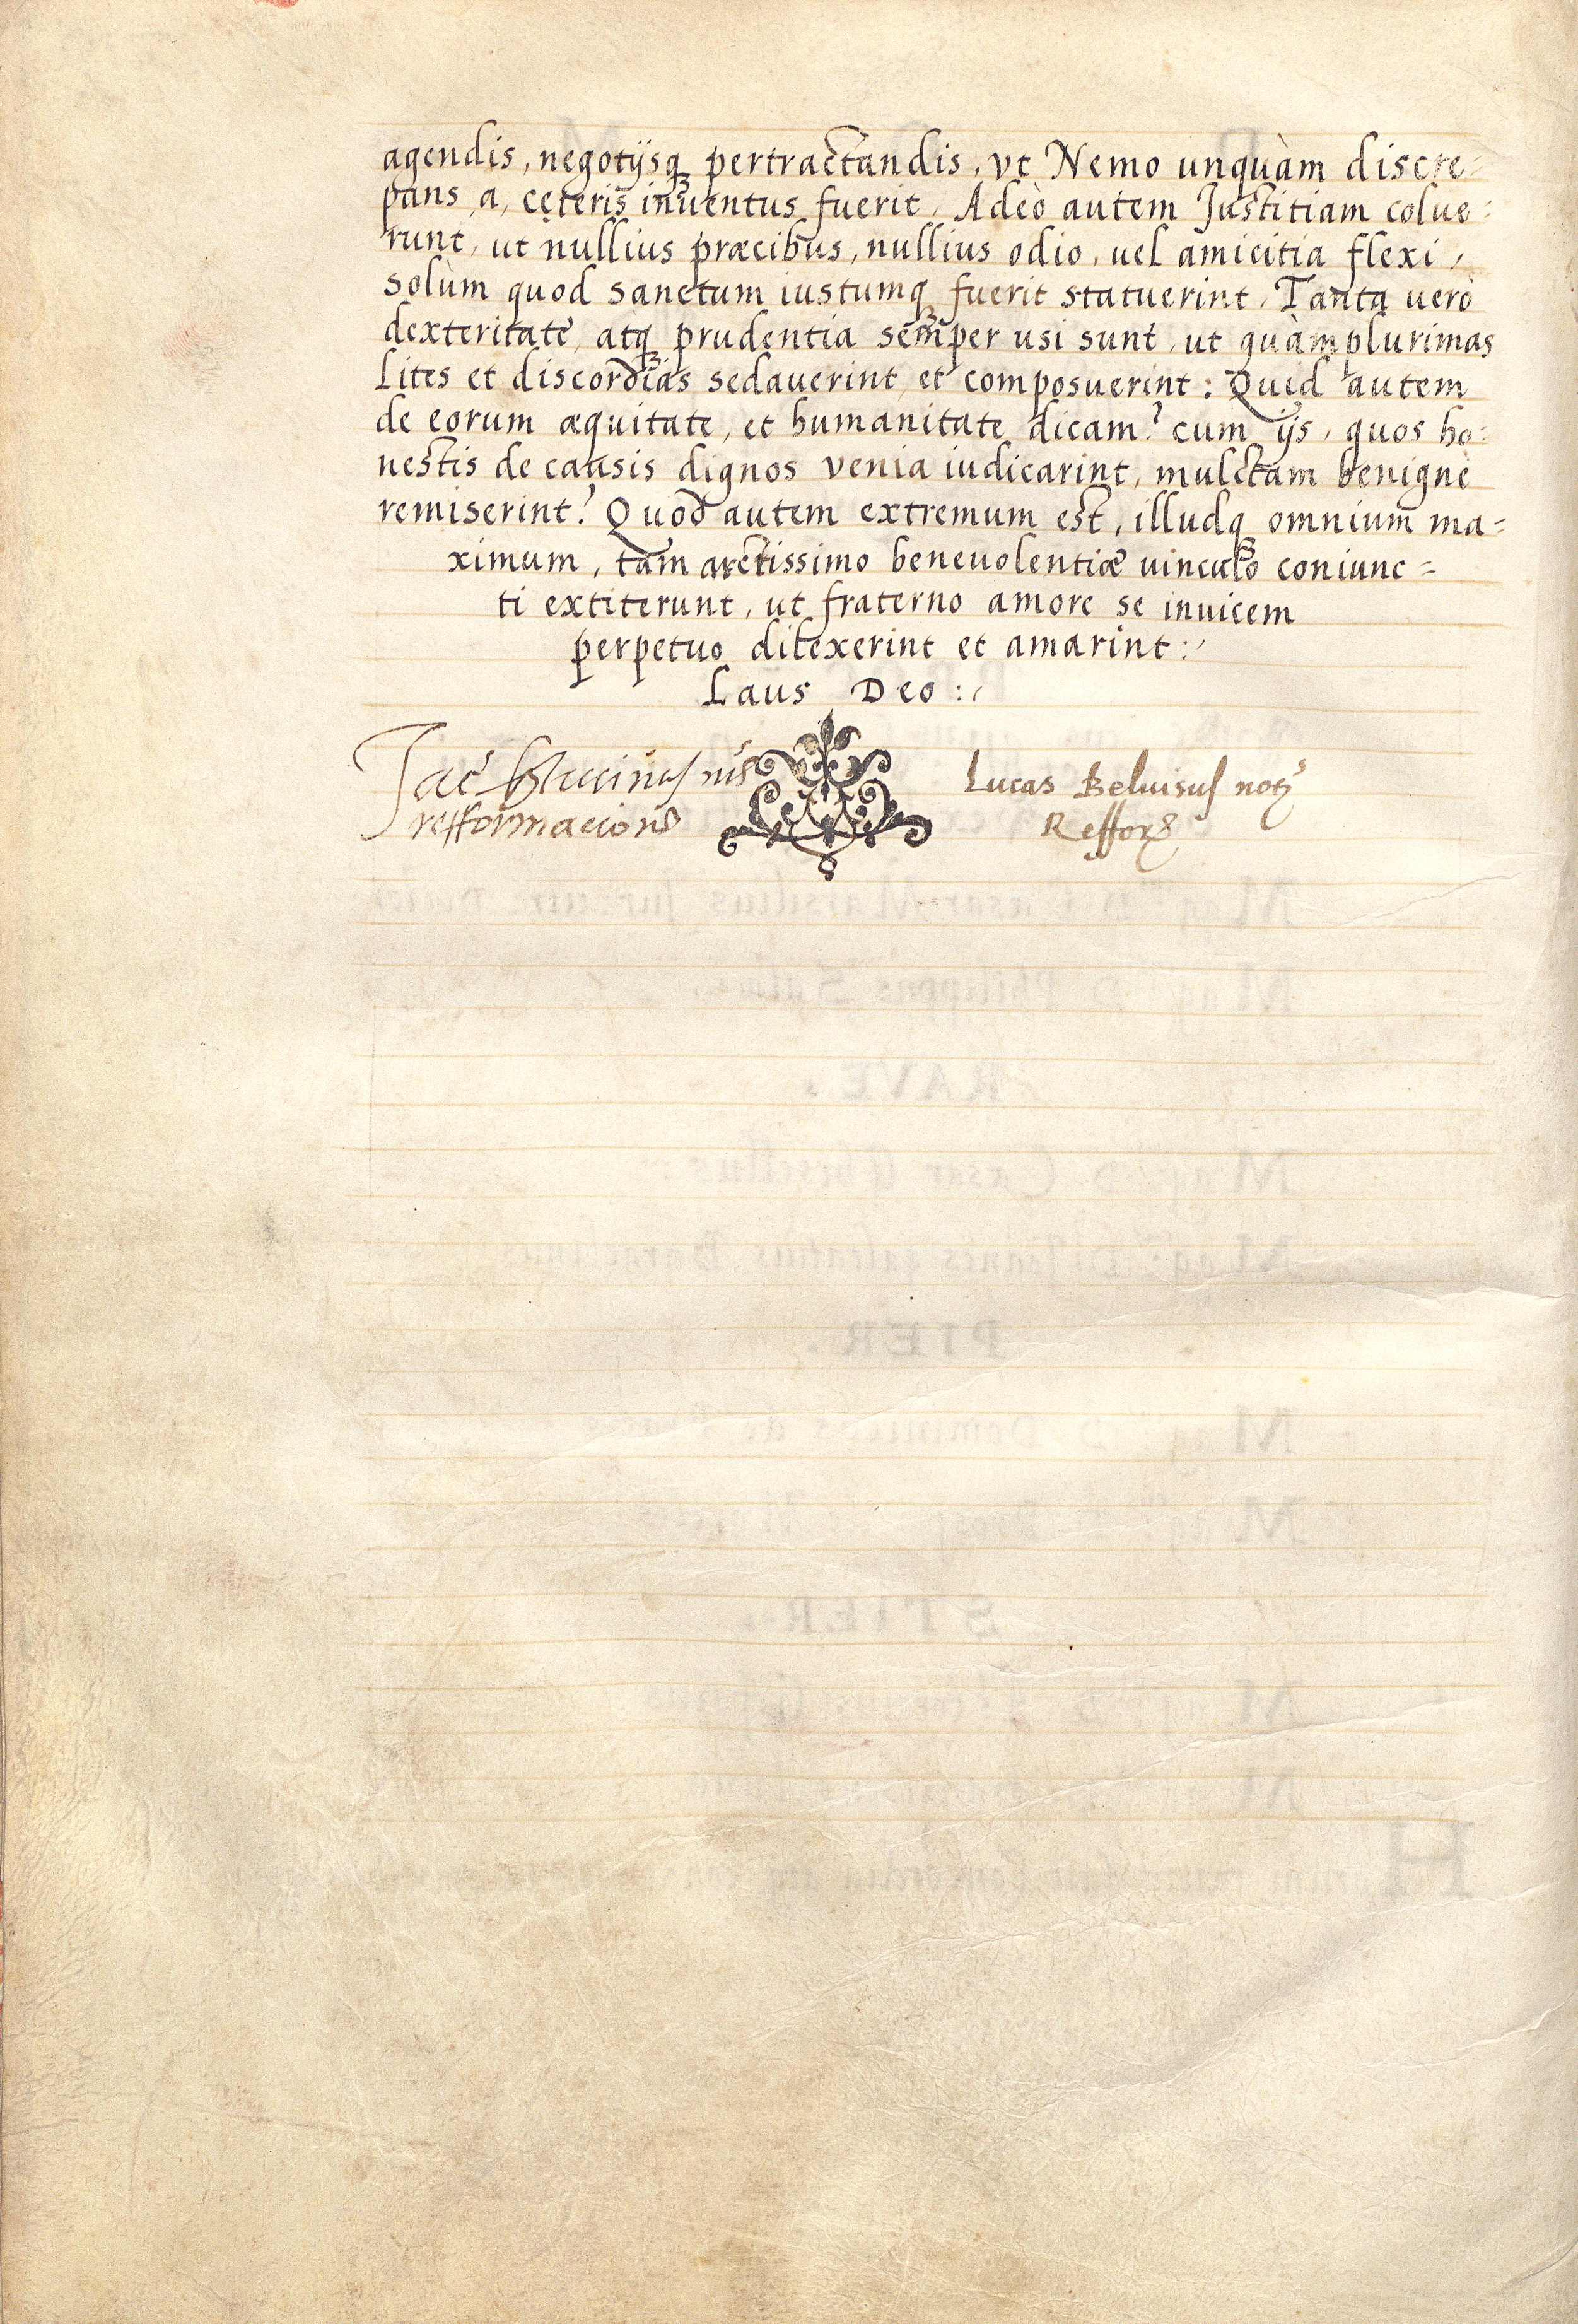 agendis, negotijsq, pertractandis, vt Nemo unquàm discre=
pans, a, cęteris inuentus fuerit, Adeò autem Justitiam colue=
runt, ut nullius præcibus, nullius odio, uel amicitia flexi,
solùm quod sanctum iustumq, fuerit statuerint, Tanta uerò
dexteritate, atq, prudentia semper usi sunt, ut quàm plurimas
Lites et discordias sedauerint, et composuerint: Quid autem
de eorum æquitate, et humanitate dicam? cum ijs, quos ho=
nestis de causis dignos venia iudicarint, mulctam benignè
remiserint? Quod autem extremum est, illudq, omnium ma=
ximum, tam arctissimo beneuolentiæ uinculo coniunc=
ti extiterunt, ut fraterno amore se inuicem
perpetuo dilexerint et amarint:
Laus Deo:
Jac
Lucas Beluisus not